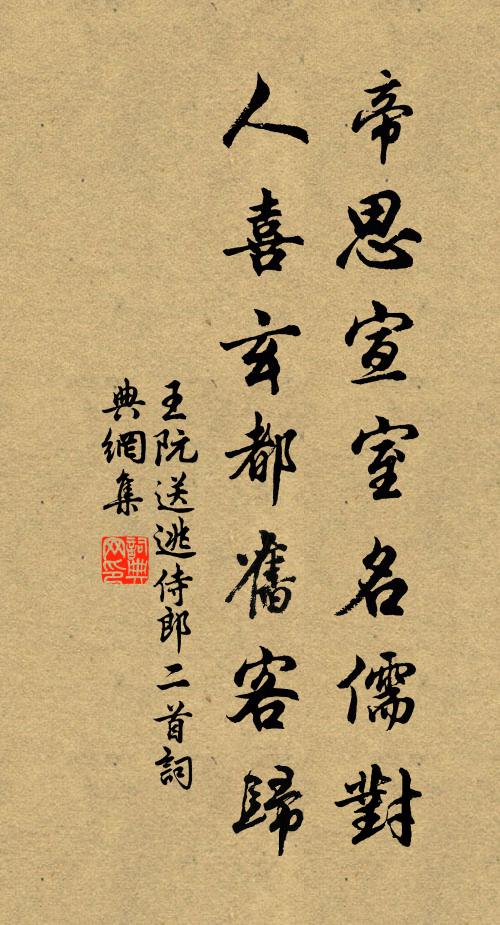 帝思宣室名儒對
人喜玄都舊客歸
王阮送逃侍郎二首詞
典網集
詞典
网印